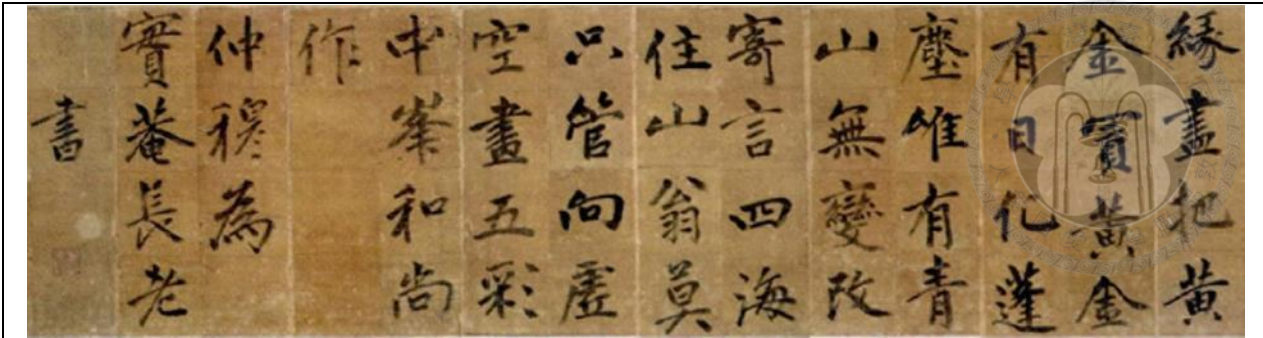 緣盡把黃
金買黃金
有日化蓬
塵唯有青
山無變改
寄言四海
住山翁莫
只管向虛
空畫五彩
中峯和尚
作
仲穆為
實菴長老
書